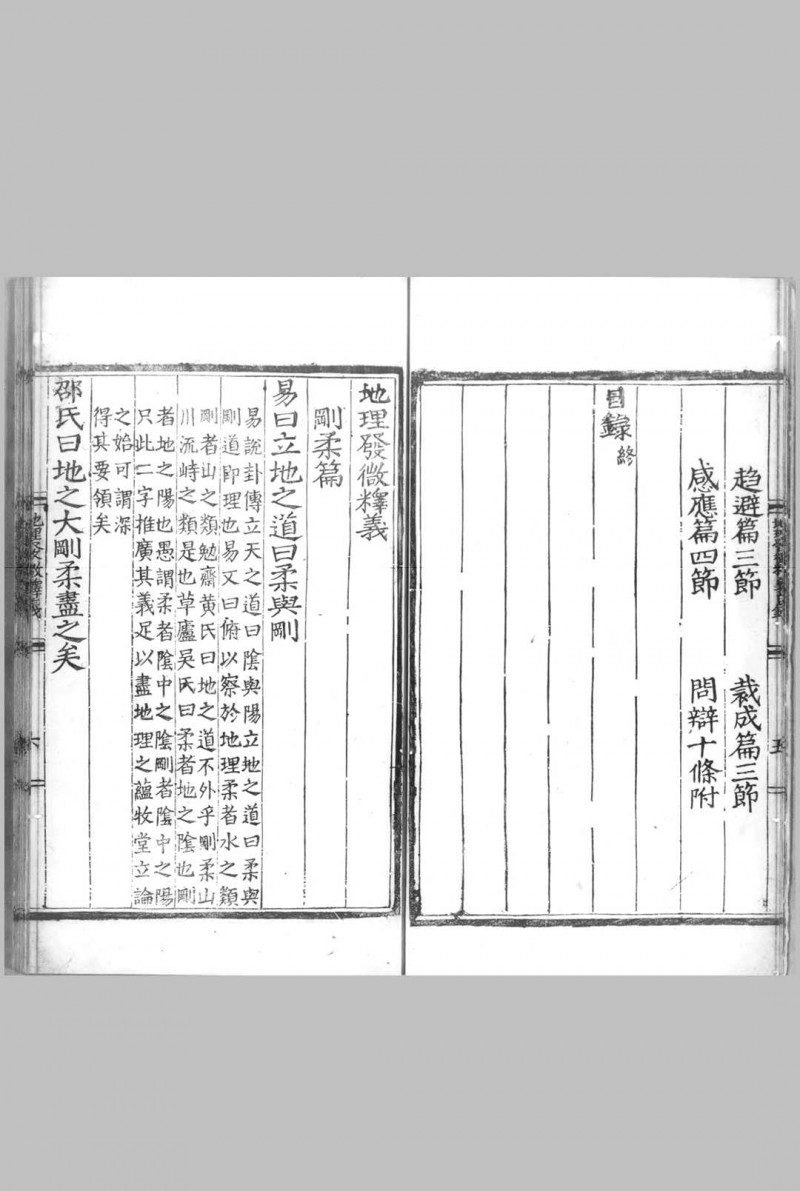 趋避篇三節　裁成篇三節
感應篇四節　問辯十條附
目錄終
五
地理發微釋義
剛柔篇
易曰立地之道曰柔與剛
易說卦傳立天之道曰陰與陽立地之道曰柔與
剛道即理也易又曰俯以察於地理柔者水之類
剛者山之類勉齋黄氏曰地之道不外乎剛柔山
川流峙之類是也草廬吳氏曰柔者地之陰也剛
者地之陽也愚謂柔者陰中之陰剛者陰中之陽
只此二字推廣其義足以盡地理之蘊牧堂立論
之始可謂深
得其要領矣
邵氏曰地之大剛柔盡之矣
地理發微釋義
六